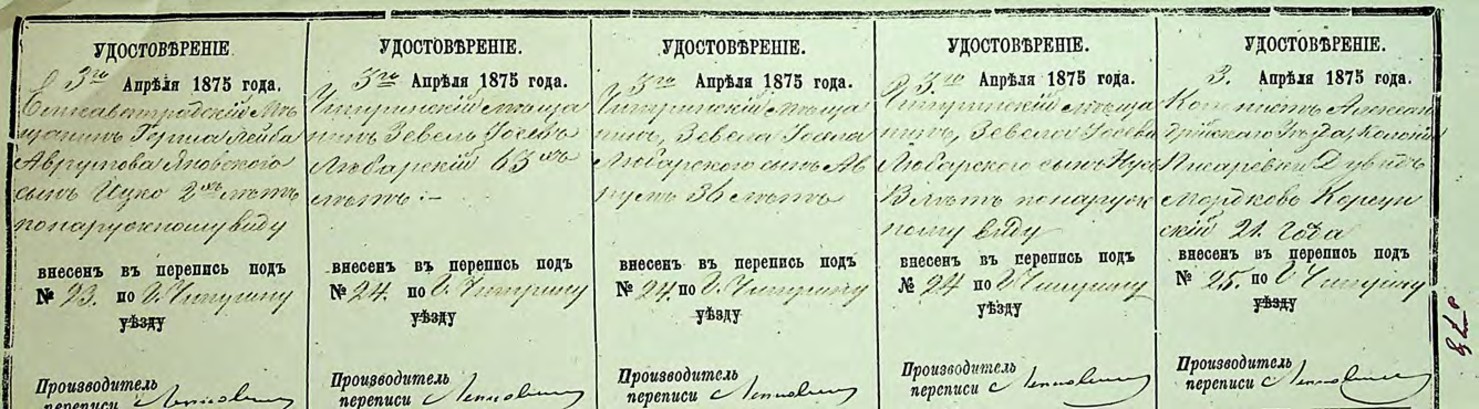 УДОСТОВѢРЕНІЕ.
3го Апрѣля 1875 года.
Елисаветградскій Мѣ
щанинъ Герша Лейба
Аврумова Яновскаго
сынъ Ицко 2хъ лѣтъ
по наружному виду
внесенъ въ перепись подъ
№ 23. по Г. Чигирину
уѣзду
Производитель
переписи
УДОСТОВѢРЕНІЕ.
3го Апрѣля 1875 года.
Чигиринскій мѣща
нинъ Зевель Іосевъ
Любарскій 63хъ
лѣтъ :-
внесенъ въ перепись подъ
№ 24. по Г. Чигирину
уѣзду
Производитель
переписи
УДОСТОВѢРЕНІЕ.
3го Апрѣля 1875 года.
Чигиринскій мѣща
нинъ, Зевеля
Любарского сынъ Ав
румъ 36 лѣтъ
внесенъ въ перепись подъ
№ 24. по Г. Чигирину
уѣзду
Производитель
переписи
УДОСТОВѢРЕНІЕ.
3го Апрѣля 1875 года.
Чигиринскій мѣща
нинъ, Зевеля
Любарского сынъ
лѣтъ по наруж
ному виду
внесенъ въ перепись подъ
№ 24 по Г. Чигирину
уѣзду
Производитель
переписи
УДОСТОВѢРЕНІЕ.
3. Апрѣля 1875 года.
Колонистъ Алексан
дрійскаго Уѣзда, Колоніи
Писаревки Дувидъ
Мордковъ Корсун
скій 21. года
внесенъ въ перепись подъ
№ 25. по Г. Чигирину
уѣзду
Производитель
переписи